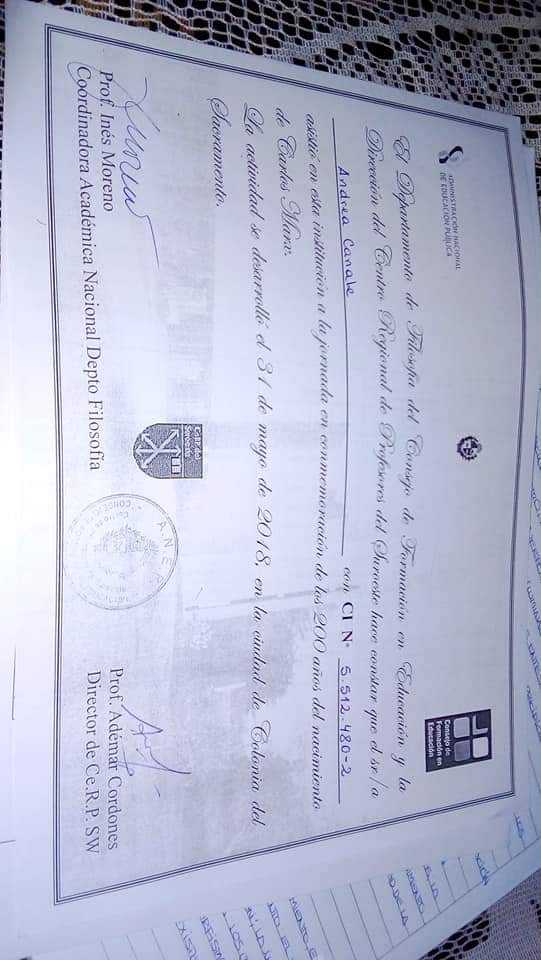 ADMINISTRACIÓN NACIONAL
DE EDUCACIÓN PÚBLICA
Consejo de
Formación en
Educación
El Departamento de Filosofía del Consejo de Formación en Educación y la
Dirección del Centro Regional de Profesores del Suroeste hace constar que el sr/a
Andrea Canale con CI Nº 5.512.480-2
asistió en esta institución a la jornada en conmemoración de los 200 años del nacimiento
de Carlos Marx.
La actividad se desarrolló el 31 de mayo de 2018, en la ciudad de Colonia del
Sacramento.
Prof. Inés Moreno
Coordinadora Académica Nacional Depto Filosofía
A N E P
Prof. Adémar Cordones
Director de Ce.R.P. SW